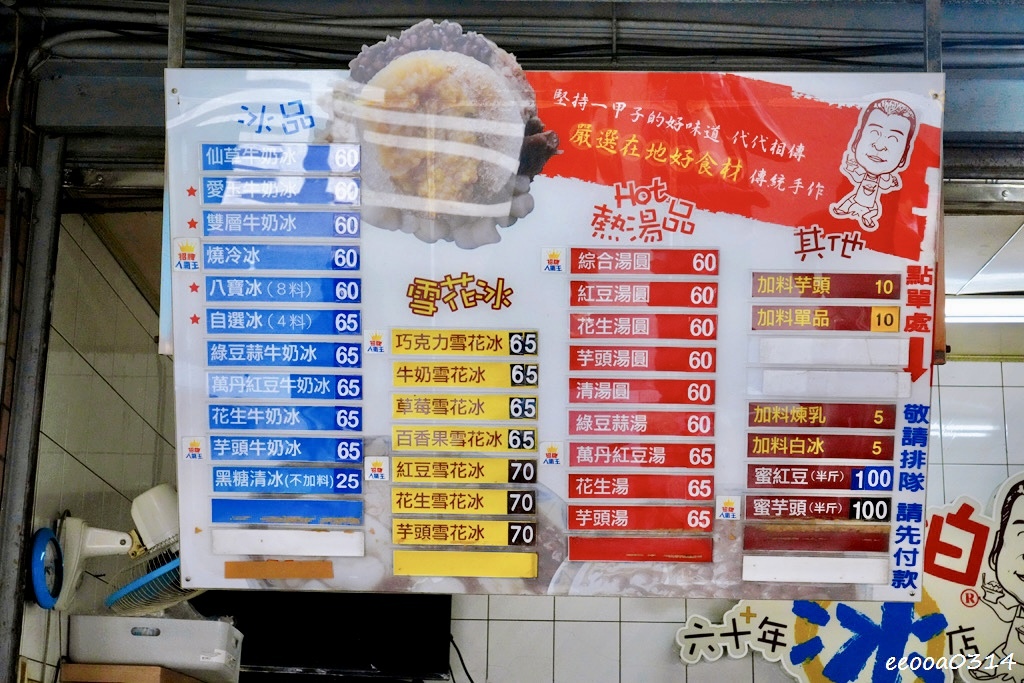 堅持一甲子的好味道 代代相傳
嚴選在地好食材 傳統手作
冰品
仙草牛奶冰 60
愛玉牛奶冰 60
雙層牛奶冰 60
招牌人氣王
燒冷冰 60
八寶冰(8料) 60
自選冰(4料) 65
綠豆蒜牛奶冰 65
萬丹紅豆牛奶冰 65
花生牛奶冰 65
招牌人氣王
芋頭牛奶冰 65
黑糖清冰(不加料) 25
雪花冰
招牌人氣王
巧克力雪花冰 65
牛奶雪花冰 65
草莓雪花冰 65
百香果雪花冰 65
招牌人氣王
紅豆雪花冰 70
花生雪花冰 70
芋頭雪花冰 70
Hot
熱湯品
招牌人氣王
綜合湯圓 60
紅豆湯圓 60
花生湯圓 60
芋頭湯圓 60
清湯圓 60
綠豆蒜湯 60
招牌人氣王
萬丹紅豆湯 65
花生湯 65
芋頭湯 65
其他
加料芋頭 10
加料單品 10
加料煉乳 5
加料白冰 5
蜜紅豆(半斤) 100
招牌人氣王
蜜芋頭(半斤) 100
點單處
敬請排隊 請先付款
伯
®
六十年
冰
店
eeooa0314